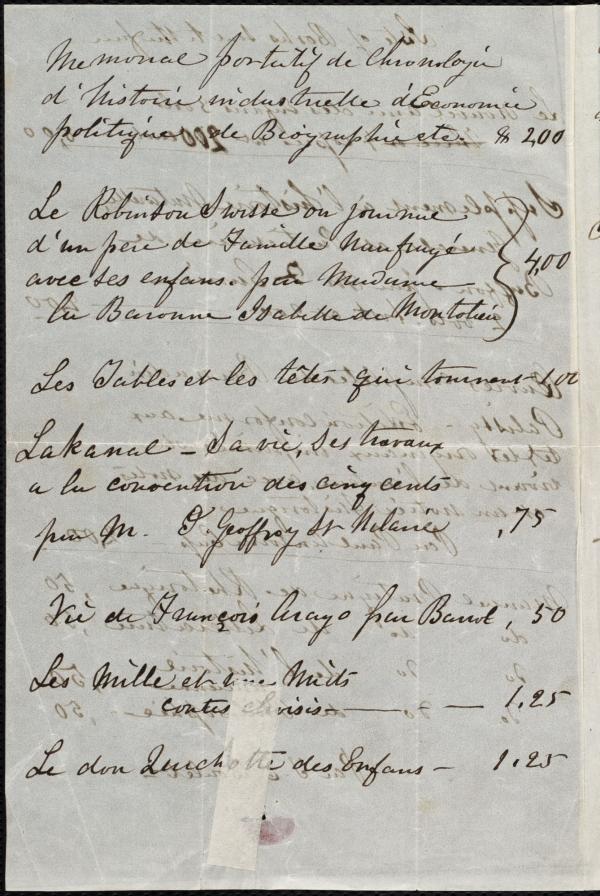 Memorial portatif de Chronologie
d'histoire industrielle d'Economie
politique de Biographie etc. $ 2,00
Le Robinson Suisse ou journal
d'un pere de Famille Naufragé
avec ses enfans par Madame 4,00
la Baronne Isabelle de Montolieu
Les Tables et les têtes qui tournent 1,00
Lakanal – Sa vie, Ses travaux
a la convention des cinq cents
par M. G. Geoffroy St Hilaire ,75
Vie de François Arago par Barrol , 50
Les Mille et une Nuits
contes choisis — — 1.25
Le don Quichotte des Enfans – 1.25